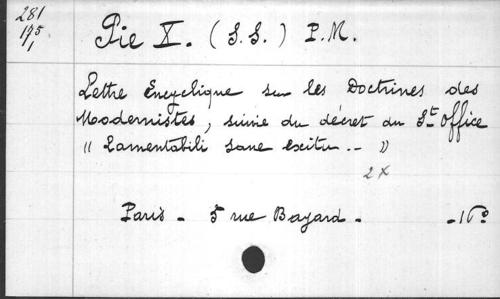 281
195
1
Pie X. (S.S.) P.M.
Lettre Encyclique sur les Doctrines des
Modernistes, suivie du décret du St Office
" Lamentabili sane exitu -- "
2 x
Paris - 5 rue Bayard - - 16º